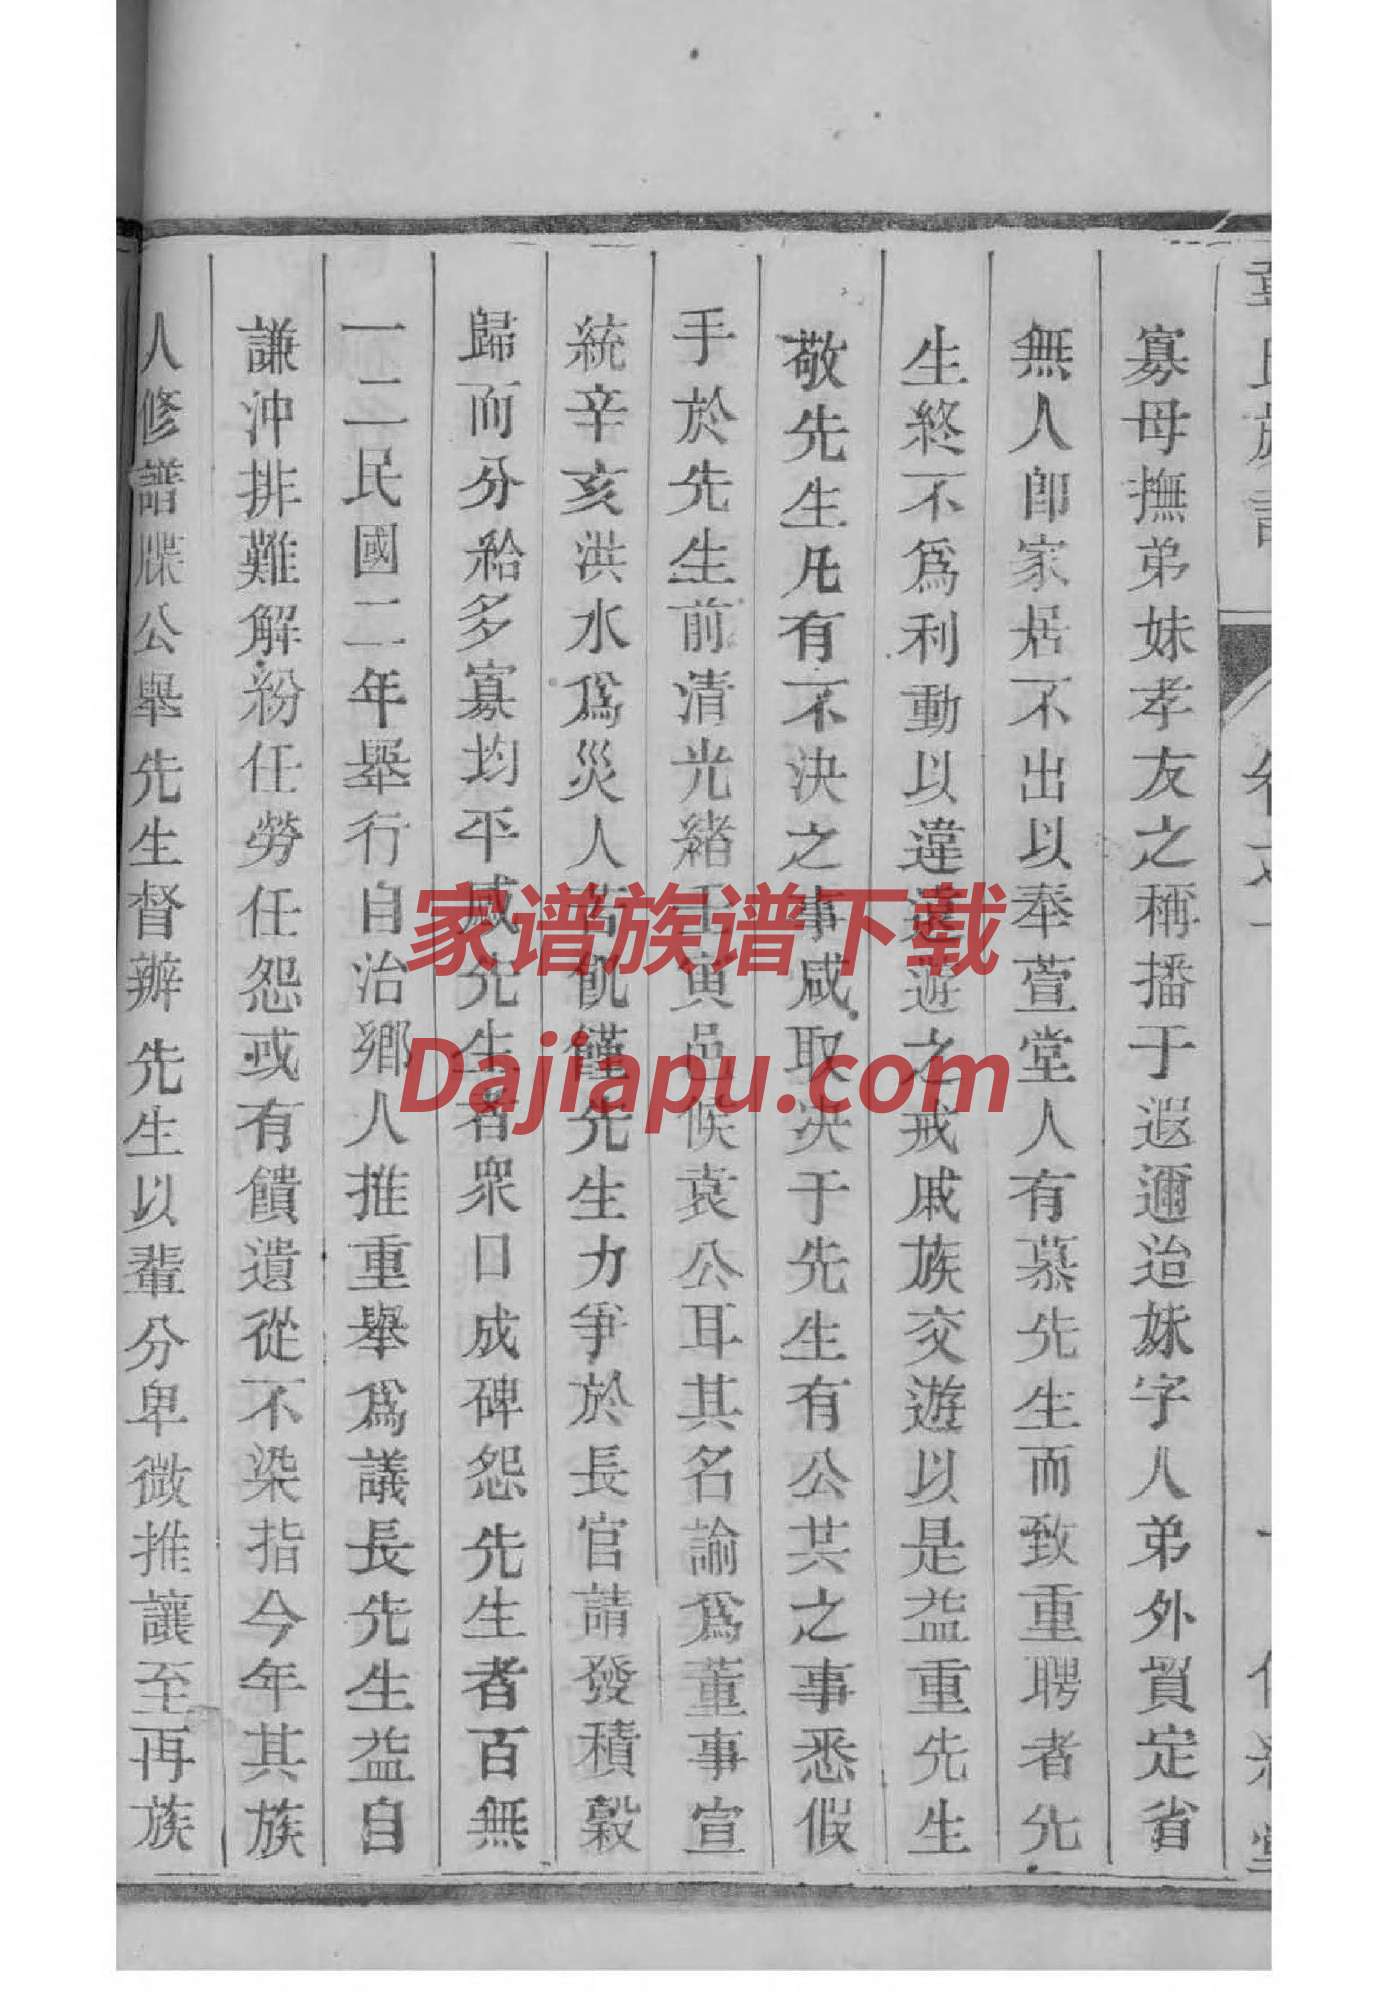 寡母撫弟妹孝友之稱播于遐邇迨妹字人弟外貿定省
無人卽家居不出以奉萱堂人有慕先生而致重聘者先
生終不爲利動以違遠遊之戒戚族交遊以是益重先生
敬先生凡有不決之事咸取決于先生有公共之事悉假
手於先生前清光緒壬寅邑候袁公耳其名諭爲董事宣
統辛亥洪水爲災人苦飢饉先生力爭於長官請發積穀
歸而分給多寡均平感先生者衆口成碑怨先生者百無
一二民國二年舉行自治鄉人推重舉爲議長先生益自
謙沖排難解紛任勞任怨或有饋遺從不染指今年其族
人修譜牒公舉先生督辦先生以輩分卑微推讓至再族
家谱族谱下载
Dajiapu.com